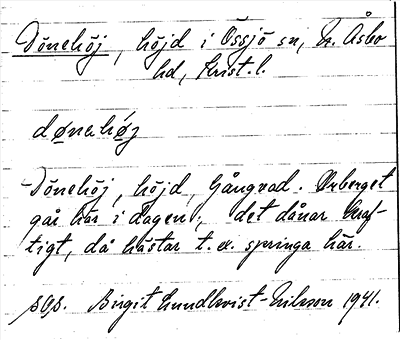 Dönehöj, höjd i Össjö sn, N. Åsbo
hd, Krist. l.
dønehøj
Dönehöj, höjd, Gångvad. Urberget
går här i dagen; det dånar kraf-
tigt, då hästar t. ex. springa här.
Birgit Lundkvist-Nilsson 1941.